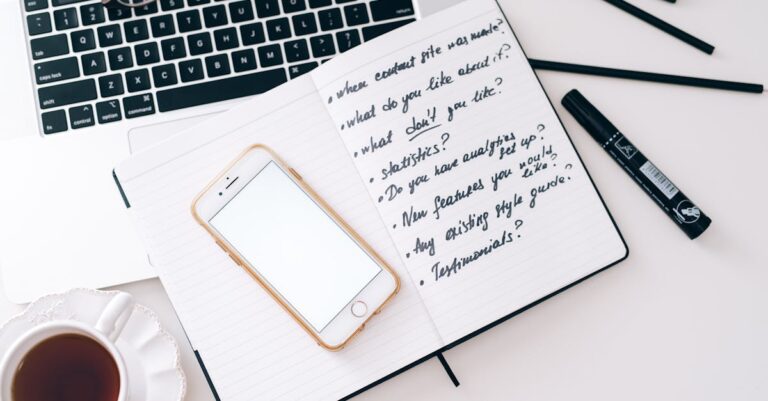 tab Q W E R T Y U I O P
caps lock A S D F G H J K L
shift Z X C V B N M
fn control option command
command option
• when content site was made?
• what do you like about it?
• what don't you like?
• statistics?
• Do you have analytics set up?
• New features you would like?
• Any existing style guide?
• Testimonials?